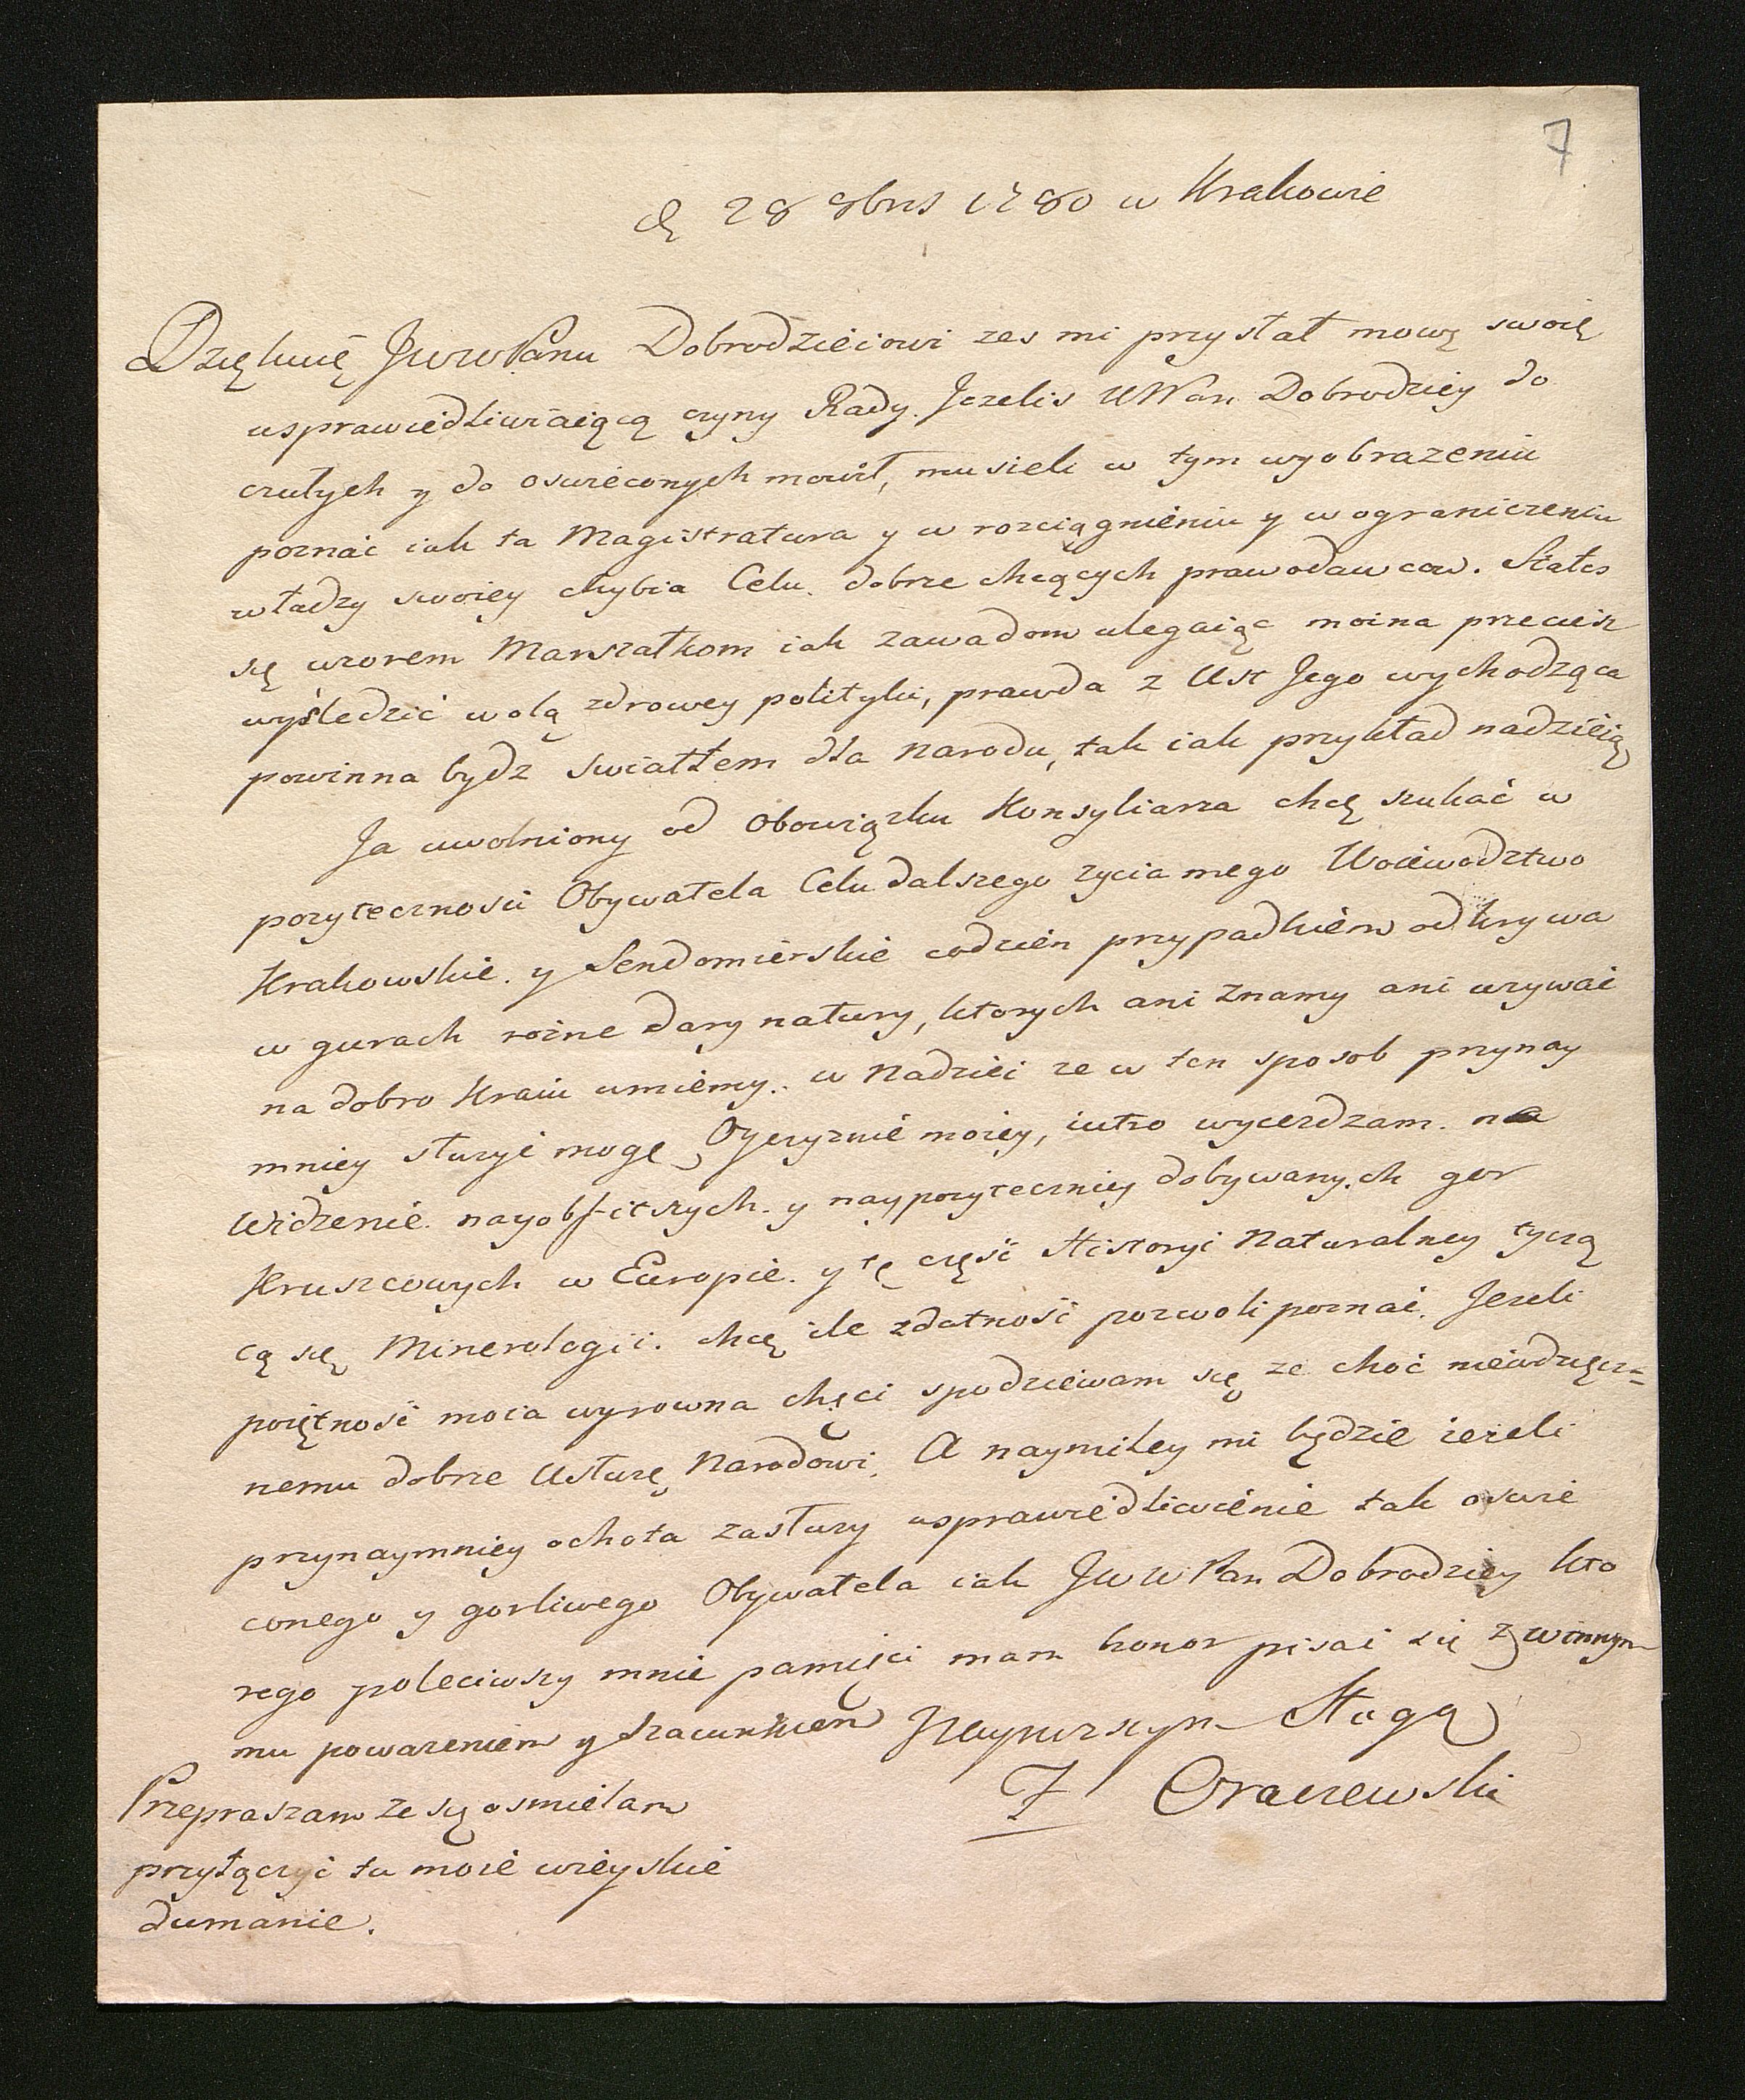 7
d 28 8bris 1780 w Krakowie
Dziękuię JWWPanu Dobrodzieiowi zes mi przysłał mowę swoię
usprawiedliwiaiącą czyny Rady. Jezelis WWPan Dobrodziey do
czułych y do oswieconych mowił, musieli w tym wyobrazeniu
poznać iak ta Magistratura y w rozciągnieniu y w ograniczeniu
władzy swoiey chybia Celu dobrze chcących prawodawcow. Stałes
się wzorem Marszałkom iak zawadom ulegaiąc moina przeciesz
wyśledzić wolą zdrowey polityki, prawda z Ust Jego wychodząca
powinna bydz swiatłem dla narodu, tak iak przykład nadzieią
Ja uwolniony od obowiązku Konsyliarza chcę szukać w
pozytecznosci Obywatela Celu dalszego zycia mego Woiewodztwo
Krakowskie y Sendomierskie codzien przypadkiem odkrywa
w gurach rożne dary natury, ktorych ani znamy ani uzywać
na dobro Kraiu umiemy. w Nadziei ze w ten sposob przynay
mniey słuzyć mogę Oyczyznie moiey, iutro wyiezdzam na
Widzenie nayobfitszych y naypozyteczniey dobywanych gor
Kruszcowych w Europie y tę część Historyi Naturalney tyczą
cą się Minerologii chcę ile zdatność pozwoli poznać. Jezeli
poiętność moia wyrowna chęci spodziewam się ze choć niewdzięcz=
nemu dobrze Usłuzę Narodowi. A naymiley mi będzie iezeli
przynaymniey ochota zasłuzy usprawiedliwienie tak oswie
conego y gorliwego Obywatela iak JWWPan Dobrodziey kto
rego poleciwszy mnie pamięci mam honor pisać się z winnym
mu powazeniem y Szacunkiem Naynizszym Sługą
F Oraczewski
Przepraszam ze się osmielam
przyłączyć tu moie wieyskie
dumanie.